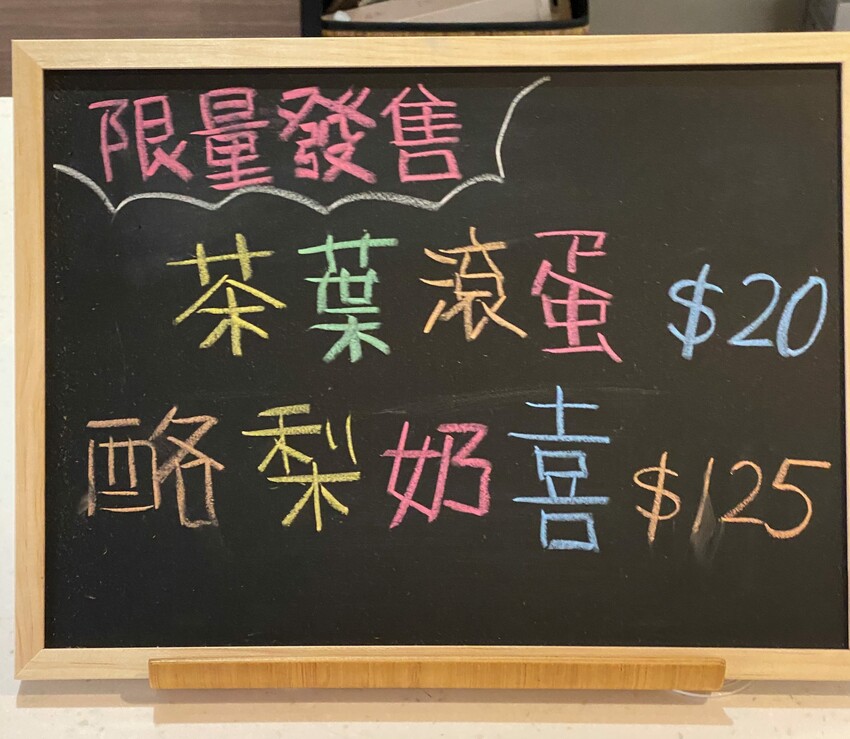 限量發售
茶葉滾蛋 $20
酪梨奶喜 $125